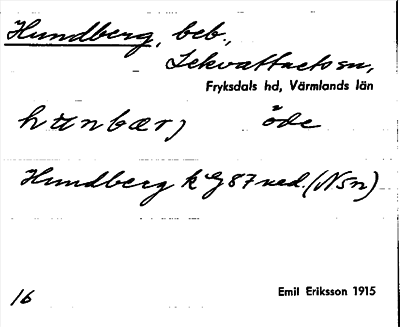 Hundberg, beb.,
Lekvattnets sn,
Fryksdals hd, Värmlands län
öde
Hundberg k G 87 ned. (N sn)
16
Emil Eriksson 1915